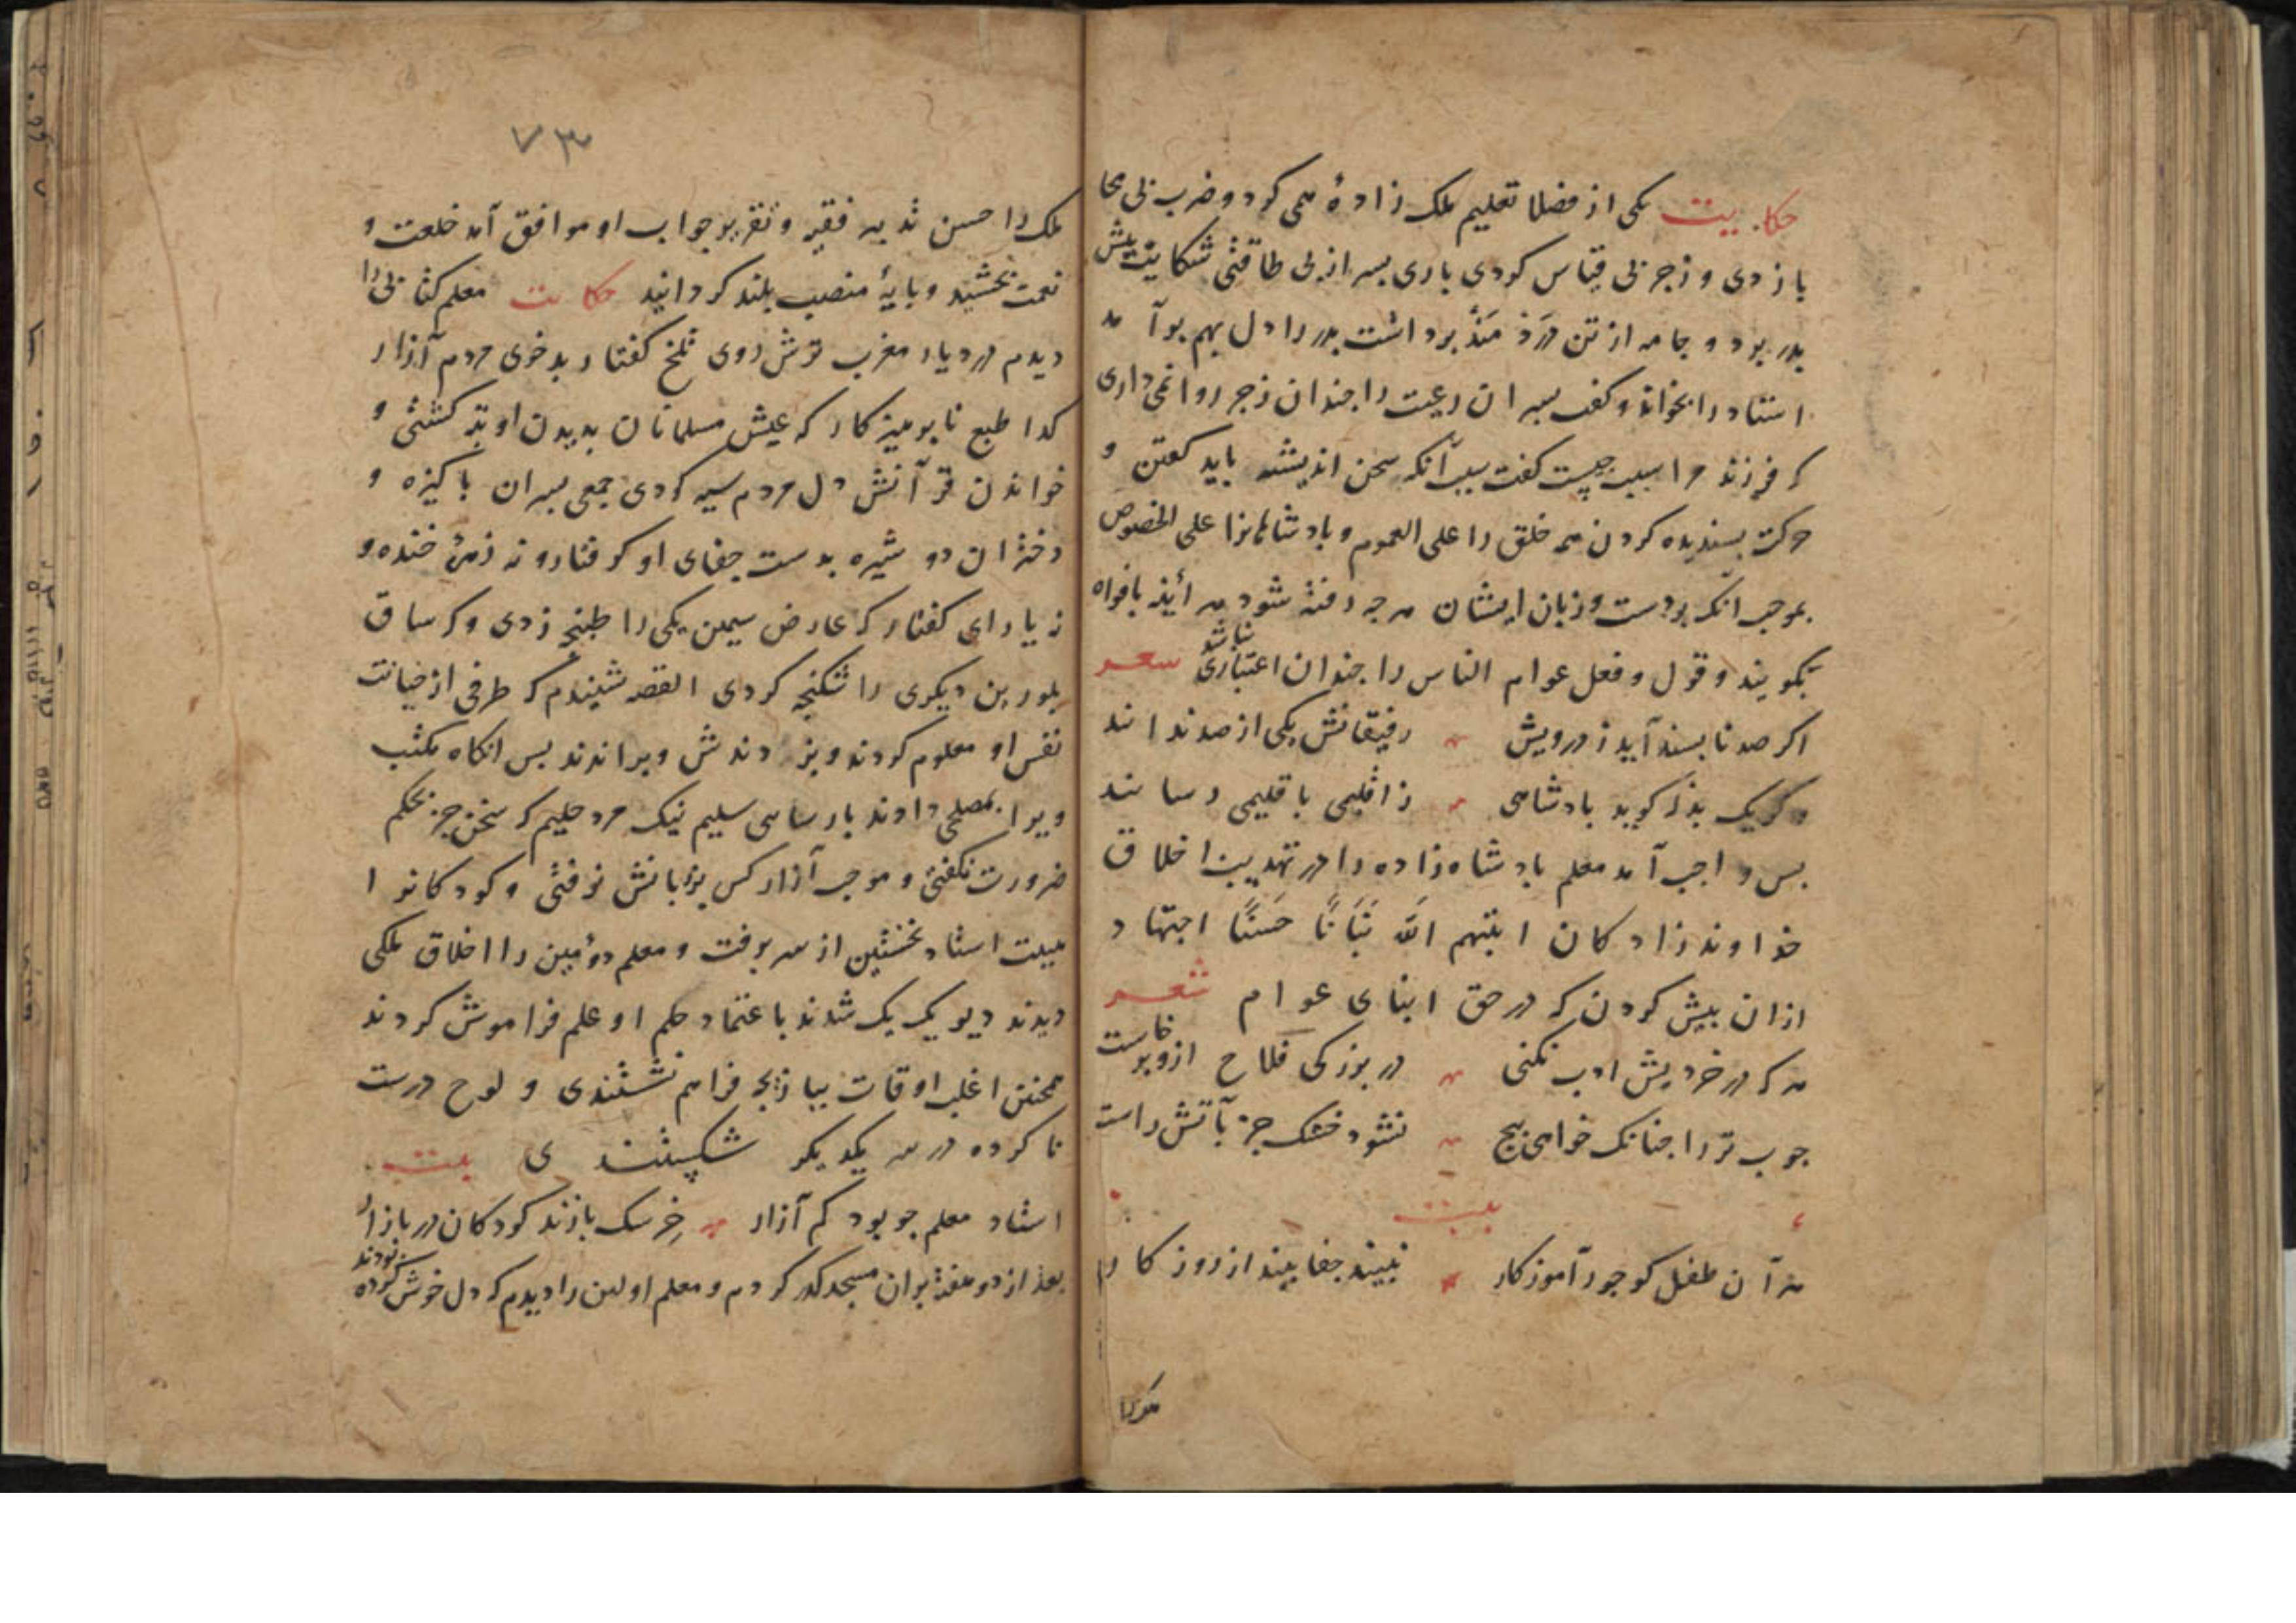 حکایت یکی از فضلا تعلیم ملک زادهٔ همی کرد و ضرب بی محا
با زدی و زجر بی قیاس کردی باری بسر از بی طاقتی شکایت بیش
بدر برد و جامه از تن دردمند برداشت بدر را دل بهم برآمد
استاد را بخواند و کفت بسران رعیت را جندان زجر روا نمی داری
که فرزند مرا سبب جیست کفت سبب آنکه سخن اندیشیده باید کفتن و
حرکت بسندیده کردن همه خلق را علی العموم و بادشاهانرا علی الخصوص
بموجب آنک بر دست و زبان ایشان هرجه رفته شود هر آینه بافواه
بکویند و قول و فعل عوام الناس را جندان اعتباری نباشد شعر
اکر صد نابسند آید ز درویش رفیقانش یکی از صد ندانند
وکر یک بذله کوید بادشاهی ز اقلیمی باقلیمی رسانند
بس واجب آمد معلم بادشاه زاده را در تهذیب اخلاق
خداوند زادکان انبتهم الله نَبَاتًا حَسَنًا اجتهاد
ازان بیش کردن که در حق ابنای عوام شعر
هر که در خردیش ادب نکنی در بزرکی فلاح ازو برخاست
جوب تر را جنانک خواهی بیج نشود خشک جز بآتش راست
بیت
هر آن طفل کو جور آموزکار نبیند جفا بیند از روزکار
ملک را
۷۳
ملک را حسن تدبیر فقیه و تقریر جواب او موافق آمد خلعت و
نعمت بخشید و بایهٔ منصب بلند کردانید حکایت معلم کتابی را
دیدم در دیار مغرب ترش روی تلخ کفتار بدخوی مردم آزار
کدا طبع نابرهیزکار که عیش مسلمانان بدیدن او تبه کشتی و
خواندن قرآنش دل مردم سیه کردی جمعی بسران باکیزه و
دختران دوشیزه بدست جفای او کرفتار و نه زهرهٔ خنده و
نه یارای کفتار که عارض سیمین یکی را طبنجه زدی و که ساق
بلورین دیکری را شکنجه کردی القصه شنیدم که طرفی از خیانت
نفس او معلوم کردند و بزدندش و براندند بس آنکاه مکتب
ویرا بمصلحی دادند بارسای سلیم نیک مرد حلیم که سخن جز بحکم
ضرورت نکفتی و موجب آزار کس بزبانش نرفتی و کودکانرا
هیبت استاد نخستین از سر برفت و معلم دومین را اخلاق ملکی
دیدند دیو یک یک شدند باعتماد حلم او علم فراموش کردند
همچنین اغلب اوقات ببازیجه فراهم نشستندی و لوح درست
ناکرده در سر یکدیکر شکستندی بیت
استاد معلم جو بود کم آزار خرسک بازند کودکان در بازار
بعد از دو هفته بر آن مسجد کذر کردم و معلم اولین را دیدم که دل خوش کرده بودند